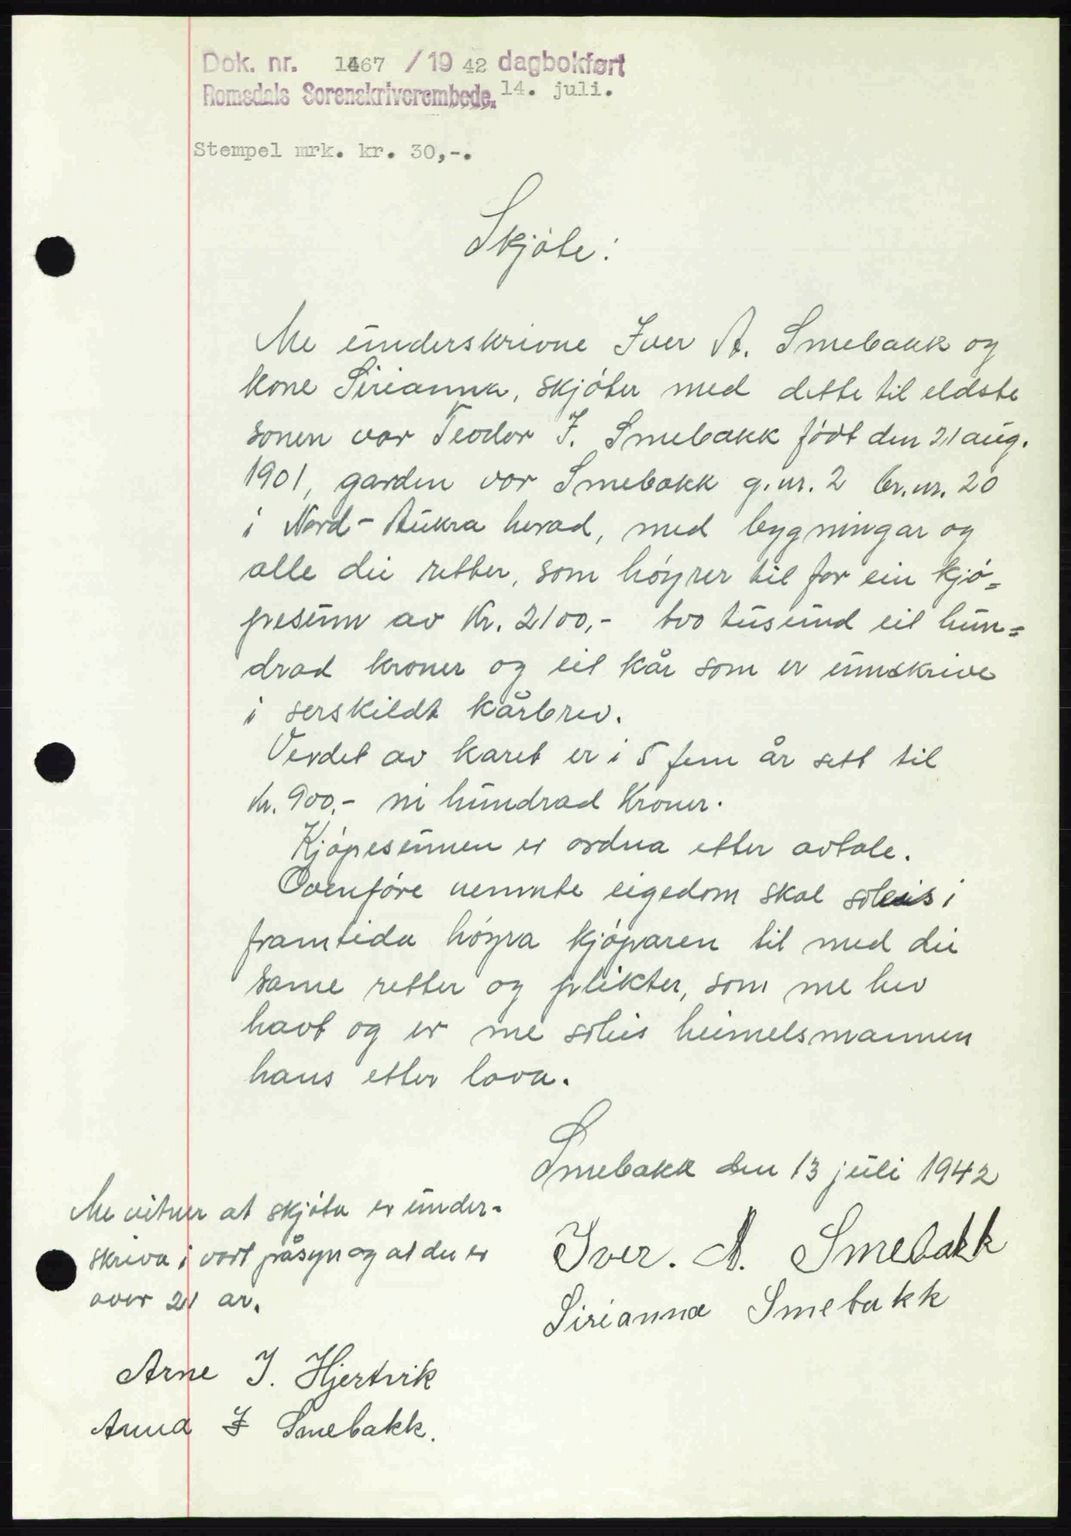 Dok. nr. 1467 / 19 42 dagbokført
Romsdals Sorenskriverembede. 14. juli.
Stempel mrk. kr. 30,-.
Skjøte:
Me underskrivne Iver A. Smebakk og
kone Sirianna, skjøter med dette til eldste
sonen vor Teodor I. Smebakk født den 21 aug.
1901, garden vor Smebakk g.nr. 2 br.nr. 20
i Nord-Aukra herad, med bygningar og
alle dei retter, som høyrer til for ein kjø=
pesum av Kr. 2100,- two tusund eit hun=
drad kroner og eit kår som er innskrive
i serskildt kårbrev.
Verdet av karet er i 5 fem år sett til
Kr. 900,- ni hundrad Kroner.
Kjøpesummen er ordna etter avtale.
Ovenføre nemnte eigedom skal soleis i
framtida høyra kjøparen til med dei
same retter og plikter, som me hev
havt og er me soleis heimelsmannen
hans etter lova.
Smebakk den 13 juli 1942
Iver. A. Smebakk
Sirianna Smebakk
Me vitner at skjøta er under-
skriva i vort påsyn og at dei er
over 21 ar.
Arne I. Hjertvik
Anna I Smebakk.